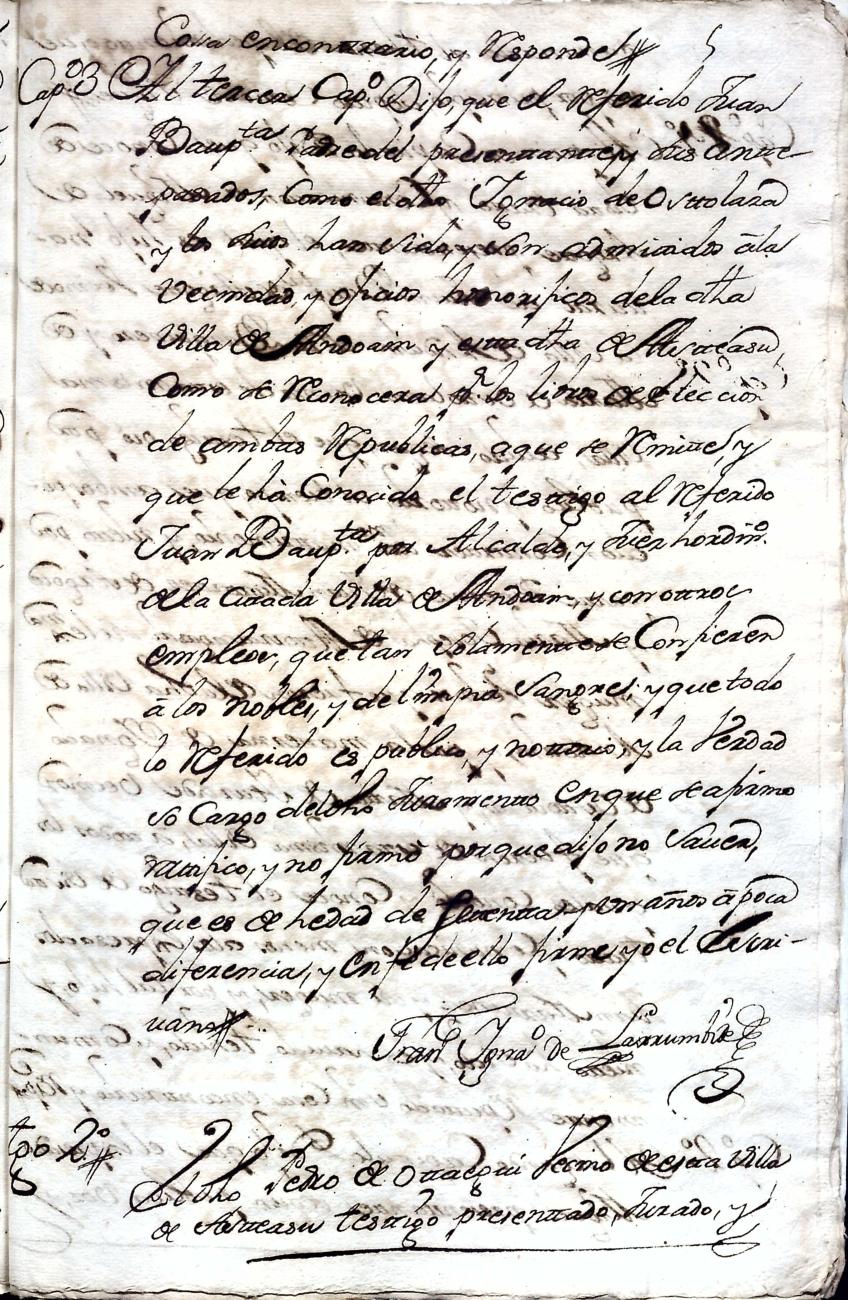 Cossa encontrario, y Responde//
Capº 3 Al tercer Capº Dijo, que el Referido Juan
Baupta Padre del presenttantte, y sus ante
pasados, Como el dho Ygnacio de Osttolaza
y sus hijos han sido, y son admitidos â la
Vecindad, y oficios honorificos de la dha
Villa de Andoain y estta dha de Astteasu,
Como se Reconocera pr. los libros de elección
de ambas Republicas, a que se Remitte, y
que le hà Conocido el testtigo al Referido
Juan Baupta por Alcalde, y Juez hordinº.
de la Citada Villa de Andoain, y con ottros
empleos, que tan solamentte se Confieren
â los nobles, y de limpia Sangre; y que todo
lo Referido es publico, y nottorio, y la Verdad
so Cargo del dho Juramentto en que se afirmo
rattifico, y no firmò porque dijo no Saver,
que es de hedad de settentta y un años â poca
diferencia, y en fe de ello firme yo el Escri-
vano//
Franº Ygnaº de Larrumbide
tgo 2º//
El dho Pedro de Ottaegui Vecino de estta Villa
de Astteasu testtigo presenttado, Jurado, y